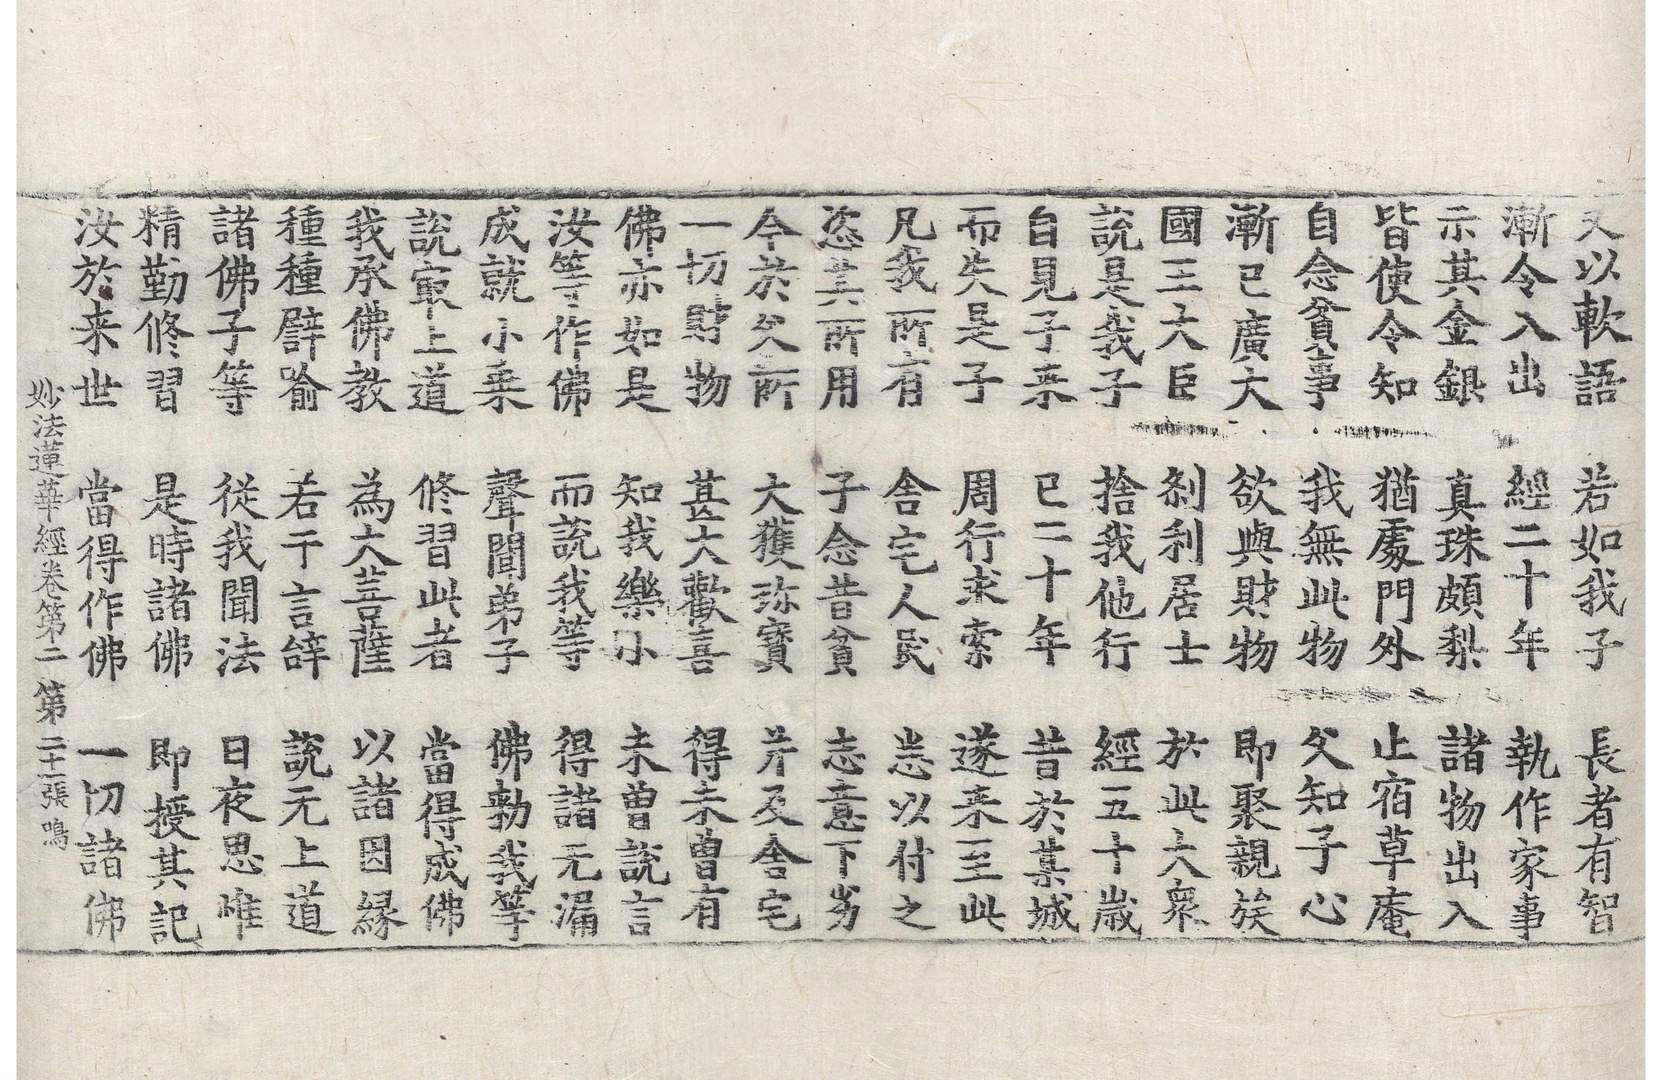 又以軟語　若如我子　長者有智
漸令入出　經二十年　執作家事
示其金銀　真珠頗梨　諸物出入
皆使令知　猶處門外　止宿草庵
自念貧事　我無此物　父知子心
漸已廣大　欲與財物　即聚親族
國王大臣　刹利居士　於此大衆
說是我子　捨我他行　經五十歲
自見子来　已二十年　昔於某城
而失是子　周行求索　遂来至此
凡我所有　舍宅人民　悉以付之
恣其所用　子念昔貧　志意下劣
今於父所　大獲珎寶　并及舍宅
一切財物　甚大歡喜　得未曾有
佛亦如是　知我樂小　未曾說言
汝等作佛　而說我等　得諸无漏
成就小乗　聲聞弟子　佛勑我等
說㝡上道　修習此者　當得成佛
我承佛教　為大菩薩　以諸因縁
種種譬喻　若干言辝　說无上道
諸佛子等　從我聞法　日夜思惟
精勤修習　是時諸佛　即授其記
汝於来世　當得作佛　一切諸佛
妙法蓮華經卷第二　第二十一張　鳴